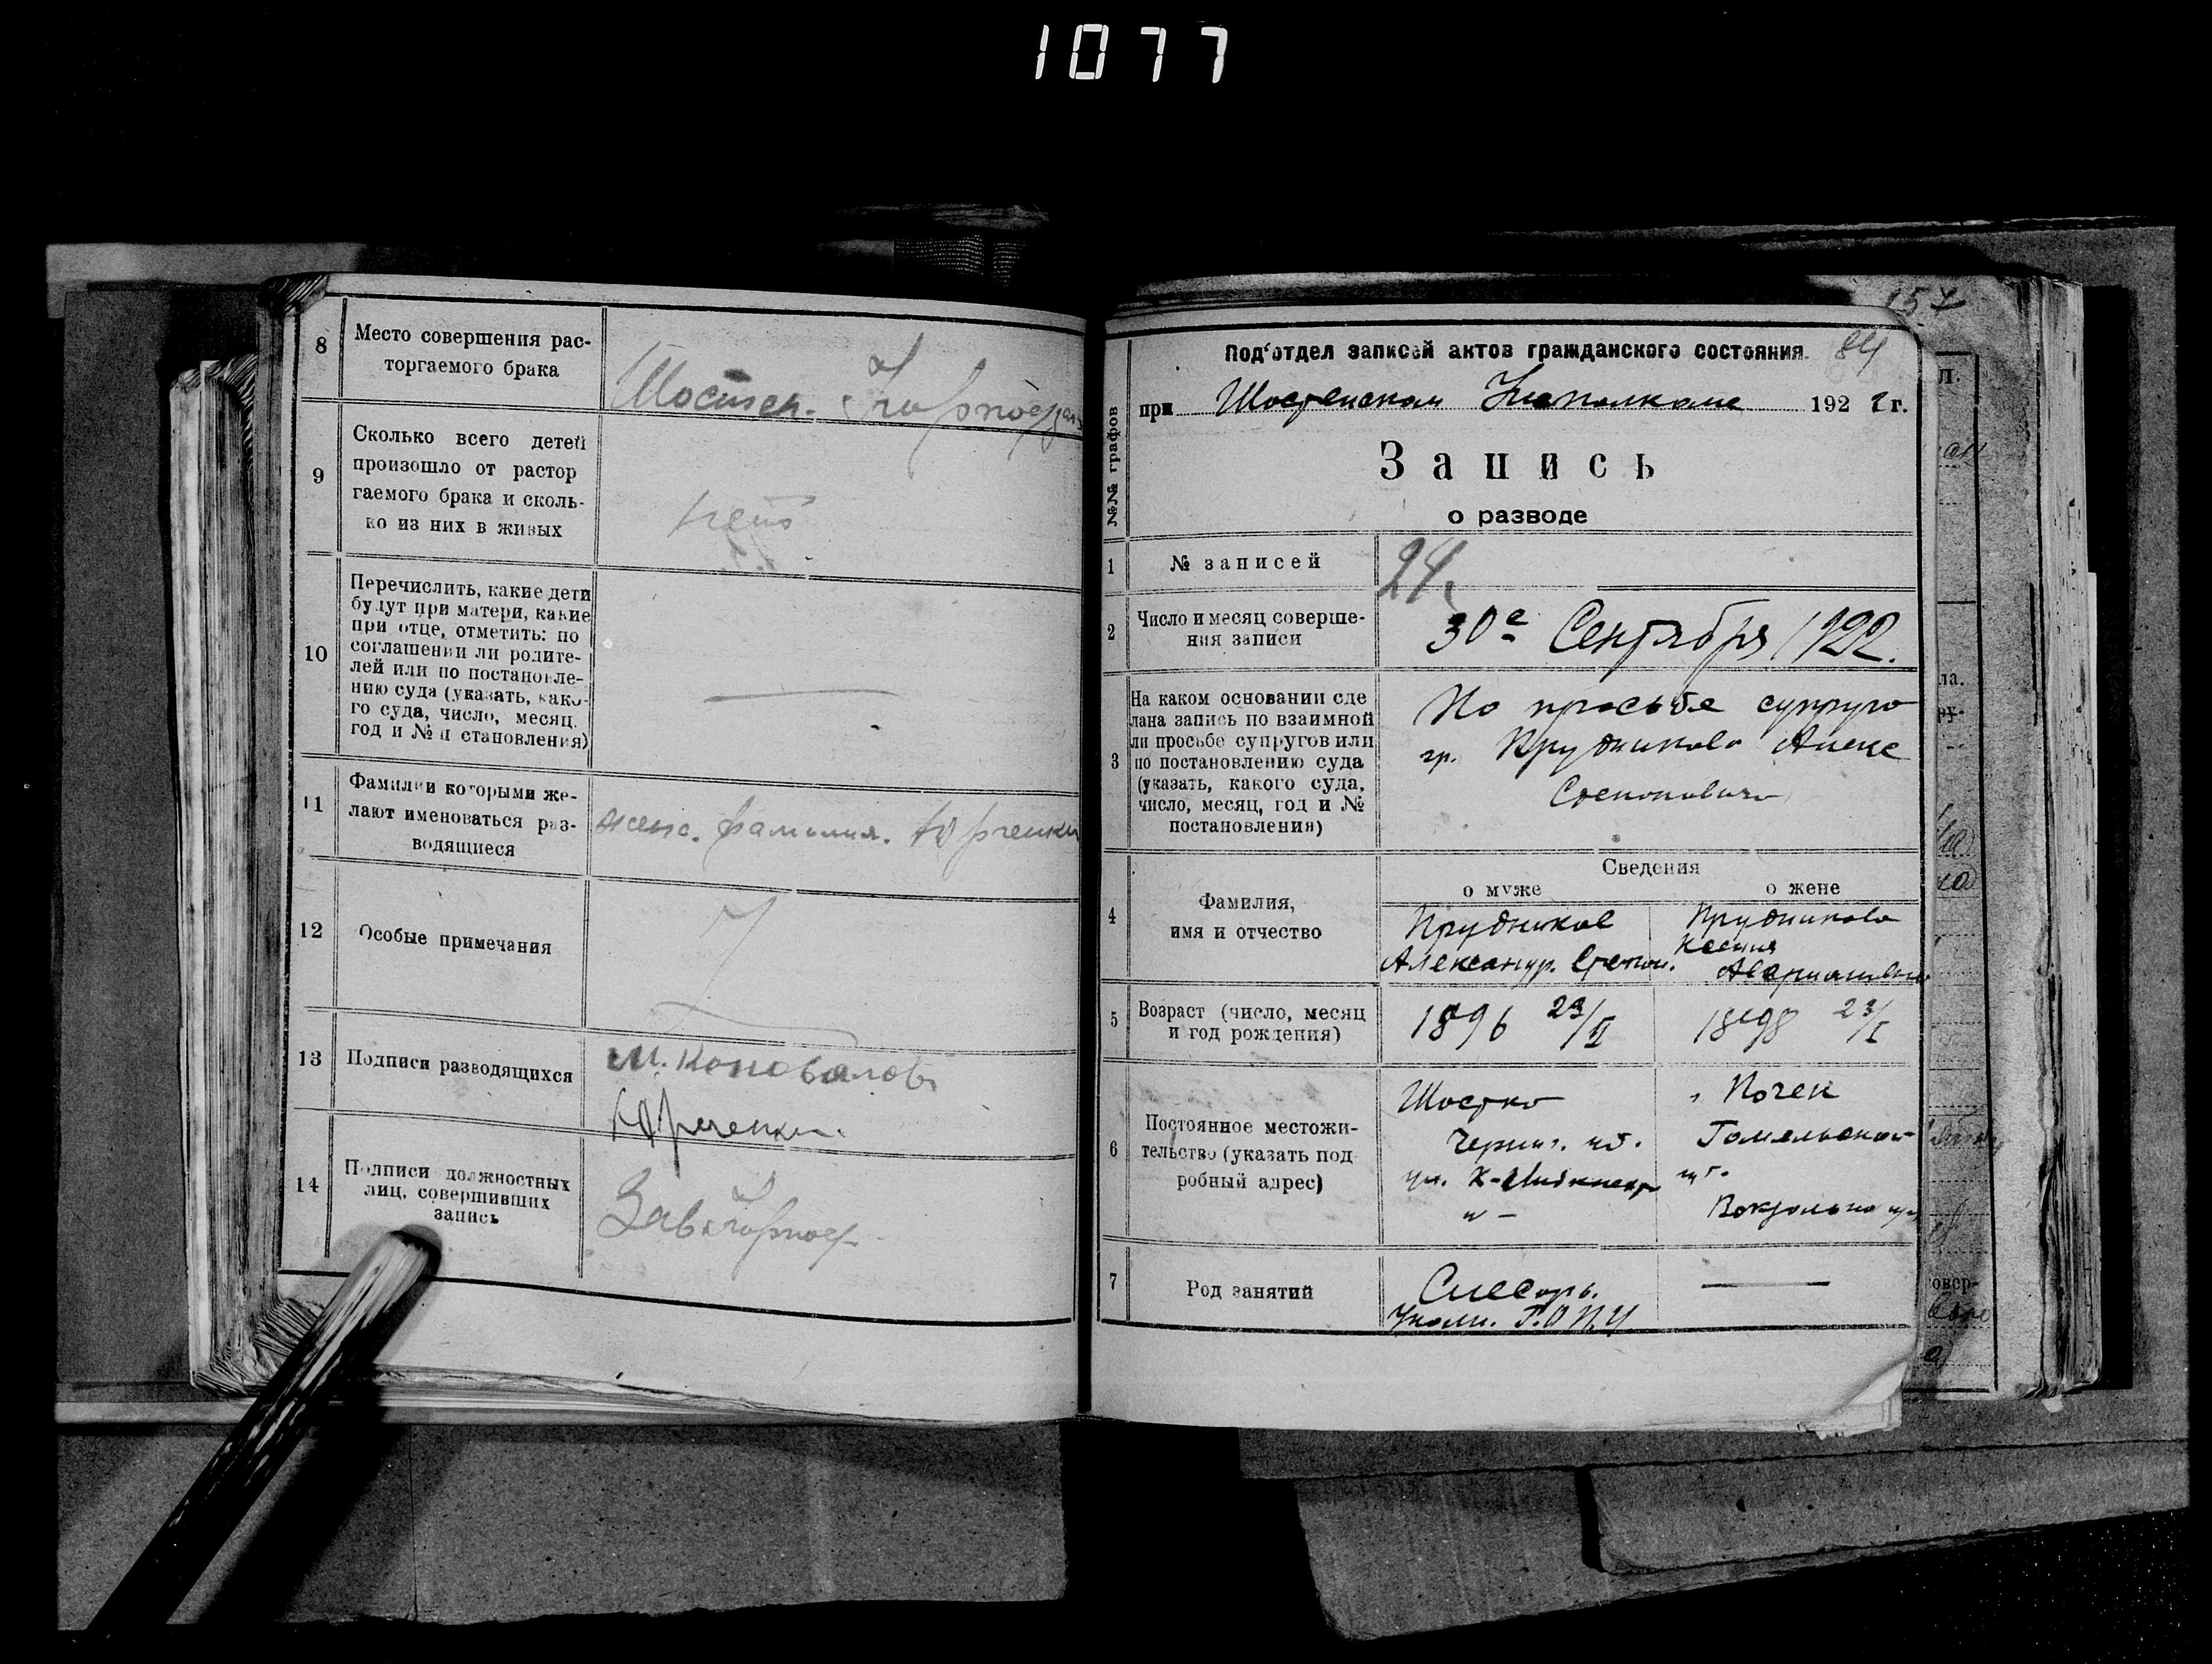 1077
8
Место совершения рас-
торгаемого брака
Шостен.
9
Сколько всего детей
произошло от растор
гаемого брака и сколь-
ко из них в живых
нет
10
Перечислить, какие дети
будут при матери, какие
при отце, отметить: по
соглашении ли родите-
лей или по постановле-
нию суда (указать, како-
го суда, число, месяц,
год и № п становления)
11
Фамилии которыми же-
лают именоваться раз-
водящиеся
женс. фамилия. Юрченко
12
Особые примечания
13
Подписи разводящихся
М. Коновалов
Юрченко
14
Подписи должностных
лиц, совершивших
запись
Зав.
157
84
Под'отдел записей актов гражданского состояния.
при Шостенском Исполкоме 1922 г.
№№ графов
Запись
о разводе
1
№ записей
24
2
Число и месяц соверше-
ния записи
30го Сентября 1922.
3
На каком основании сде
лана запись по взаимной
ли просьбе супругов или
по постановлению суда
(указать, какого суда,
число, месяц, год и №
постановления)
По просьбе супруга
гр. Прудникова Алекс
Степановича
4
Фамилия,
имя и отчество
Сведения
о муже
о жене
Прудников
Александр. Степан.
Прудникова
Ксения
5
Возраст (число, месяц
и год рождения)
1896 23/II
1898 23/I
6
Постоянное местожи-
тельство (указать под
робный адрес)
Шостка
Черниг. губ.
ул.
Почеп
Гомельской
губ.
7
Род занятий
Слесарь.
Г.О.П.У